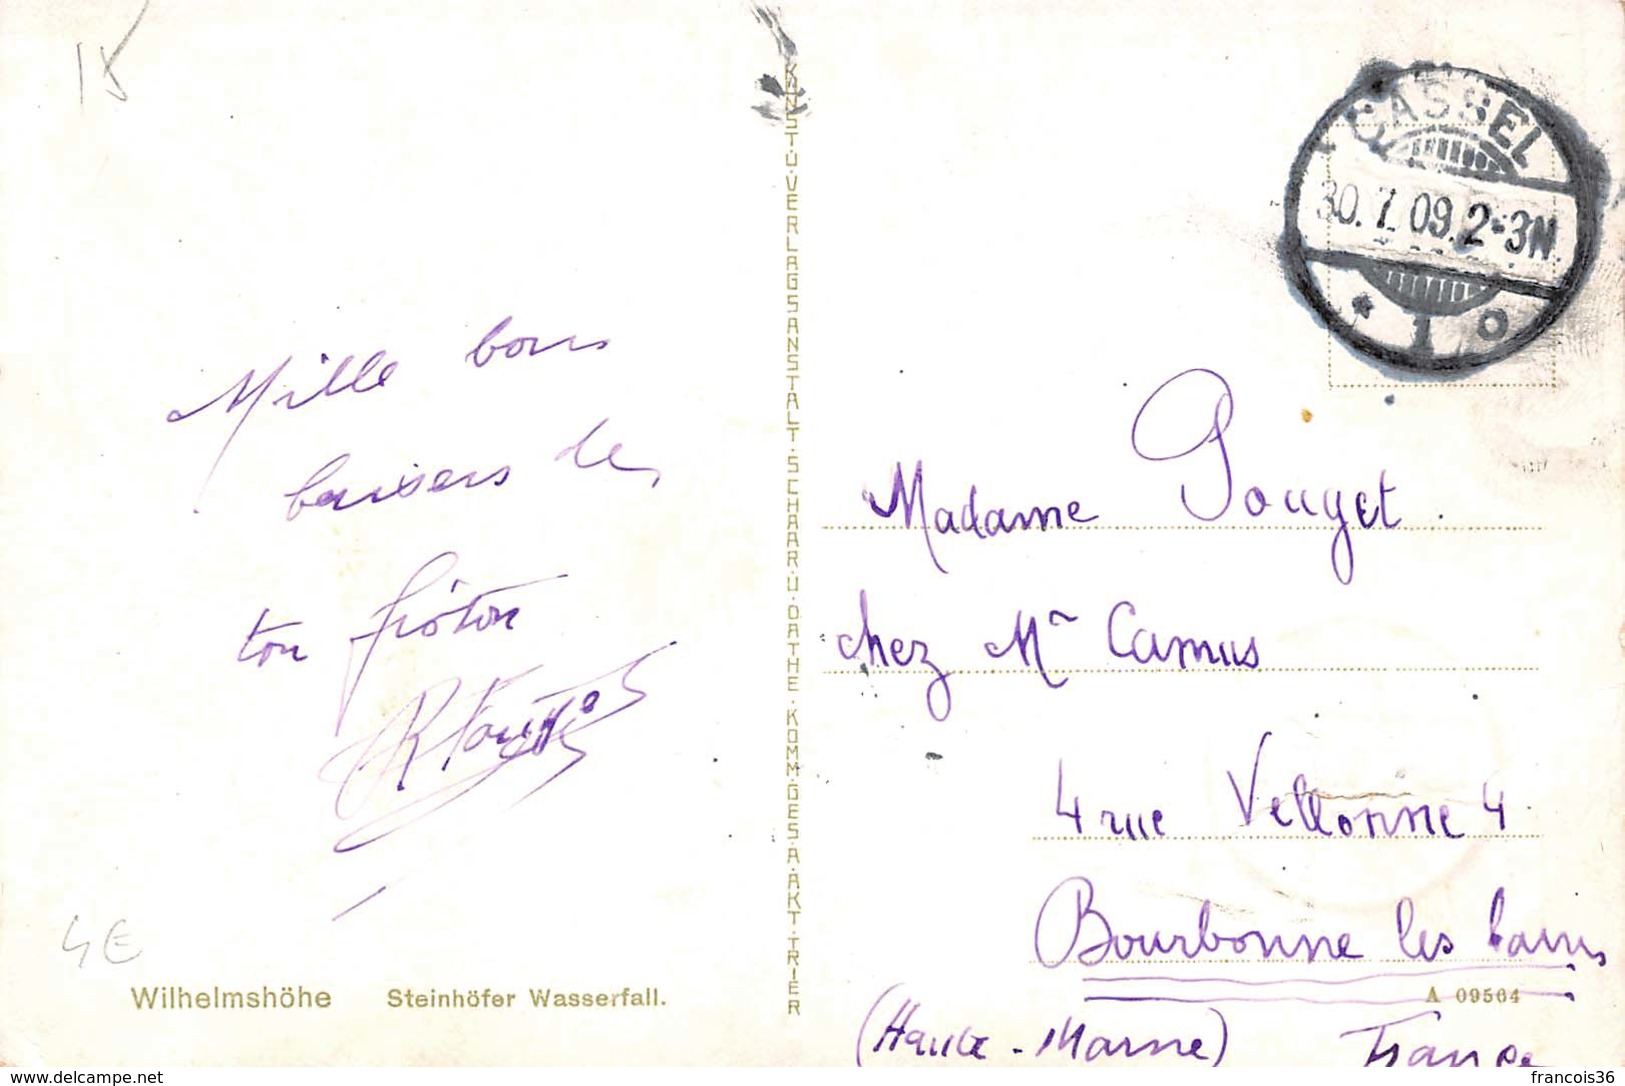 18
Mille bons
baisers de
ton fiston
Wilhelmshöhe Steinhöfer Wasserfall.
4€
KUNST.U.VERLAGSANSTALT.SCHAAR.U.DATHE.KOMM.GES.A.AKT.TRIER
CASSEL
30.7.09.2-3N
* 1 o
Madame Pouget
chez Mr Camus
4 rue Vellonne 4
Bourbonne les bains
A 09564
(Haute-Marne) France
www.delcampe.net
francois36